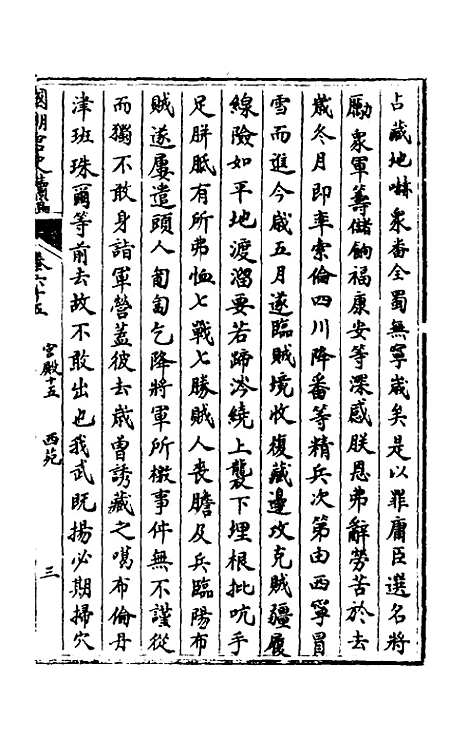 占藏地啉衆番全蜀無寧歲矣是以罪庸臣選名將
勵衆軍籌儲餉福康安等深感朕恩弗辭勞苦於去
歲冬月即率索倫四川降番等精兵次第由西寧冒
雪而進今歲五月遂臨賊境收復藏邊攻克賊疆履
線險如平地渡溜要若蹄涔繞上襲下埋根批吭手
足胼胝有所弗恤七戰七勝賊人喪膽及兵臨陽布
賊遂屢遣頭人匍匐乞降將軍所檄事件無不謹從
而獨不敢身詣軍營蓋彼去歲曾誘藏之噶布倫丹
津班珠爾等前去故不敢出也我武既揚必期掃穴
國朝宮史續編
卷六十五
宮殿十五
西苑
三